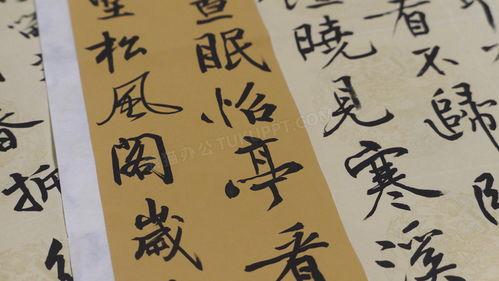 看不歸
曉見寒溪
晝眠怡亭看
松風閣歲
春
办公 TUKUPPT.COM